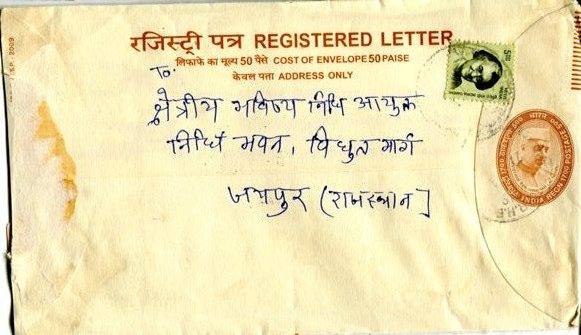 रजिस्ट्री पत्र REGISTERED LETTER
लिफाफे का मूल्य 50 पैसे COST OF ENVELOPE 50 PAISE
केवल पता ADDRESS ONLY
To.
क्षेत्रीय भविष्य निधि आयुक्त
निधि भवन, विधुत मार्ग
जयपुर (राजस्थान]
भारत
INDIA
S.P. 2009